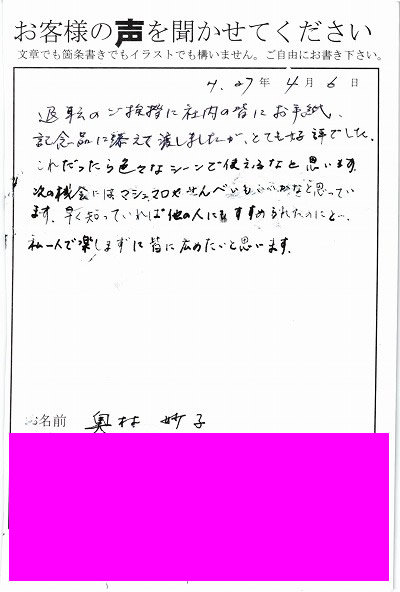 お客様の声を聞かせてください
文章でも箇条書きでもイラストでも構いません。ご自由にお書き下さい。
H.27年 4月 6日
退転のご挨拶に社内の皆にお手紙、
記念品に添えて渡しましたが、とても好評でした。
これだったら色々なシーンで使えるなと思います。
次の機会にはマシュマロやせんべいもいいかなと思ってい
ます。早く知っていれば他の人にもすすめられたのにと…
私一人で楽しまずに皆に広めたいと思います。
お名前 奥村 妙子